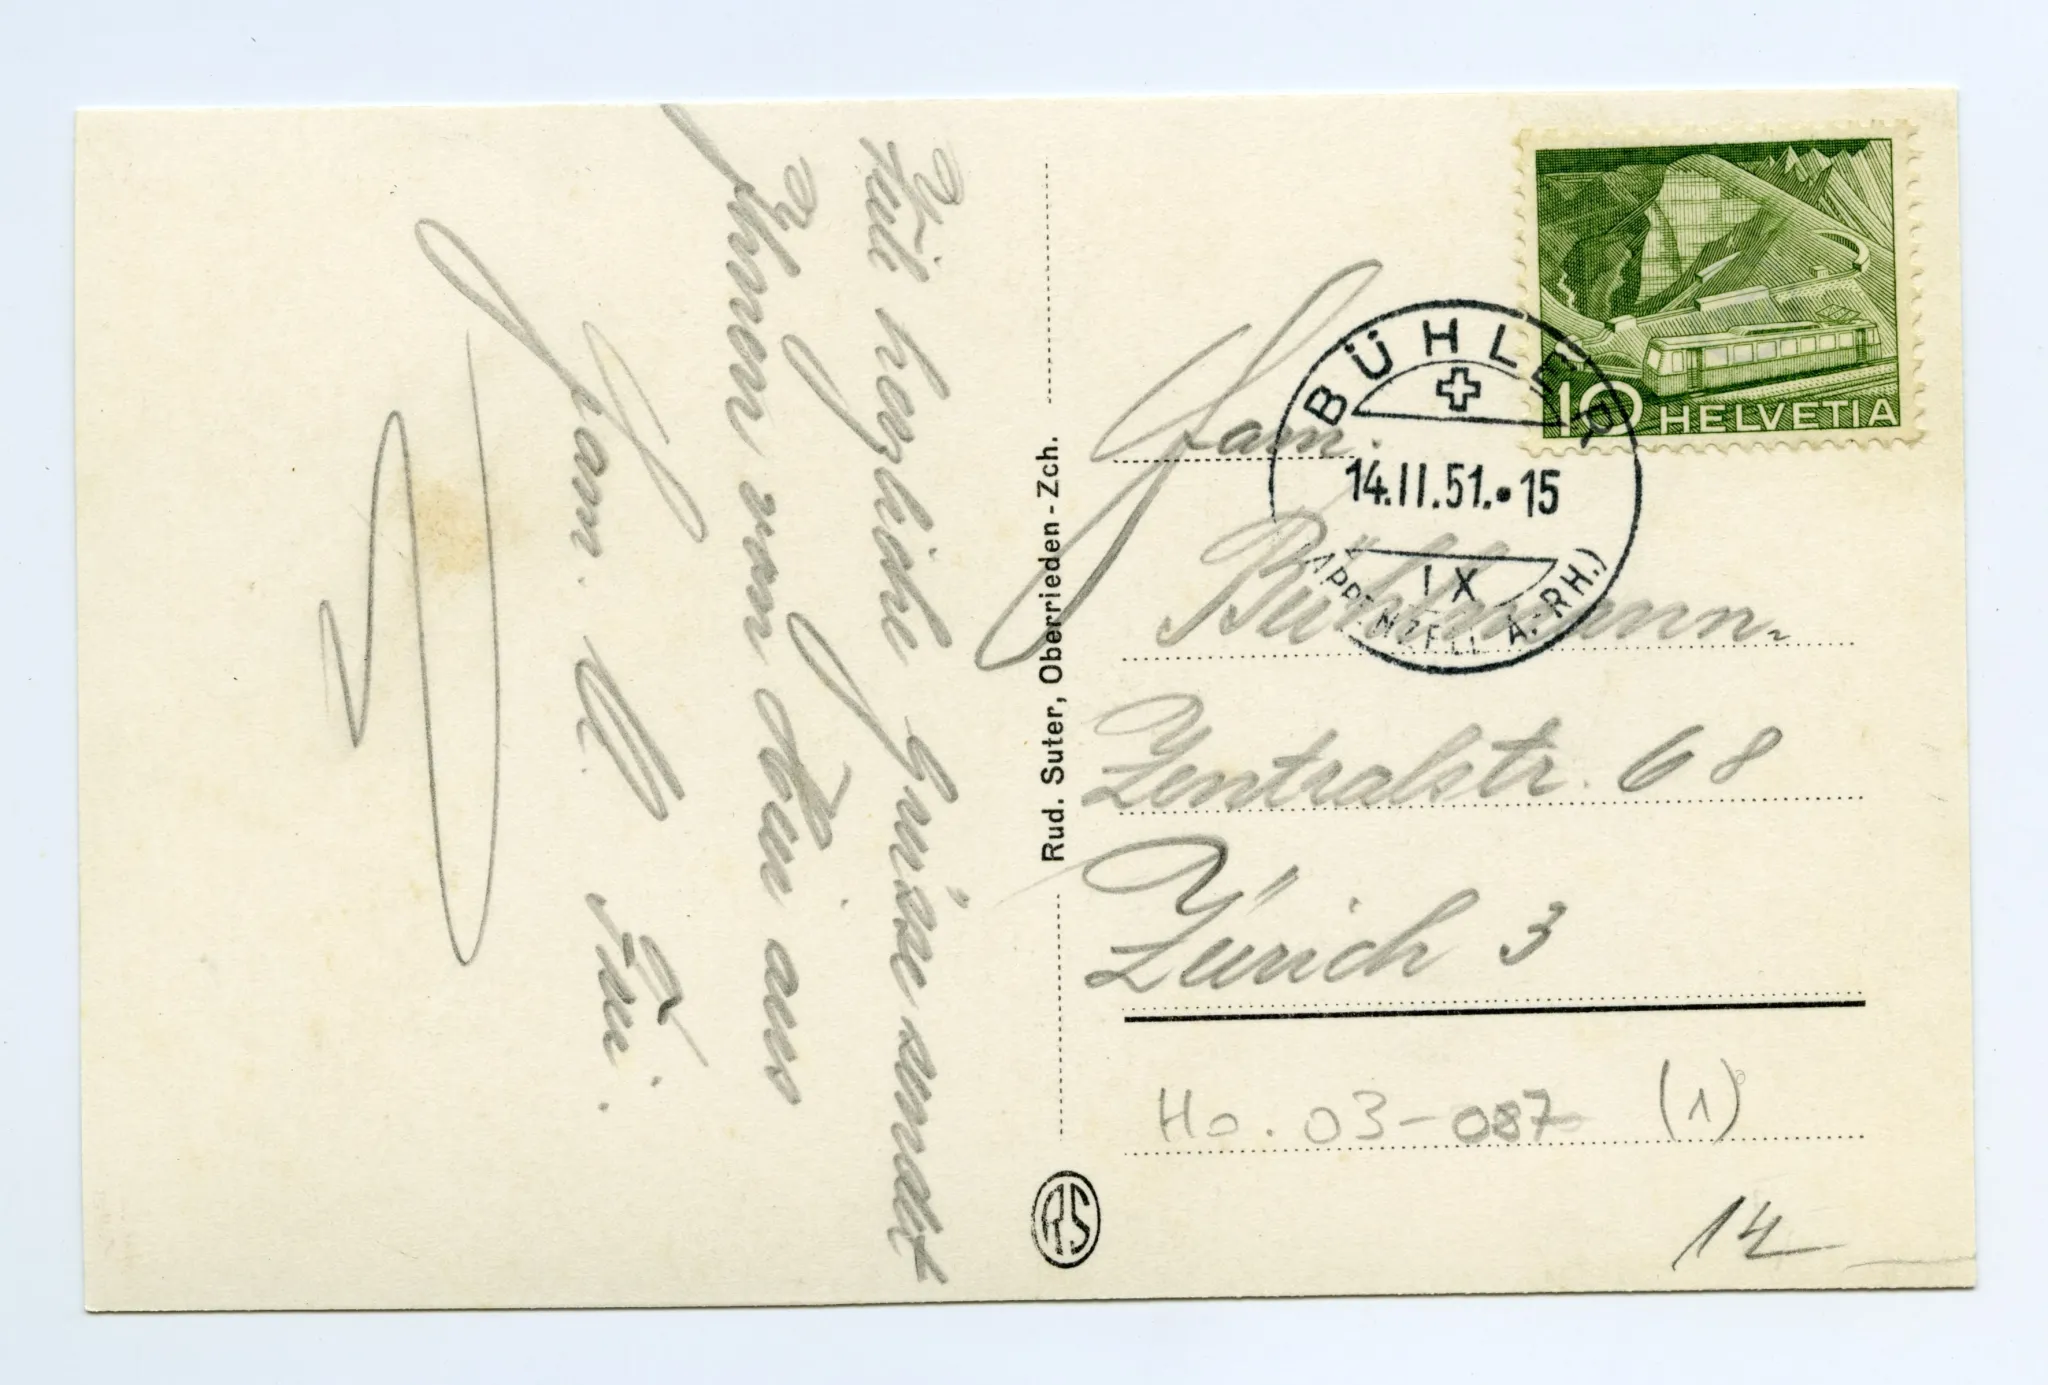 Viele herzliche Grüsse sendet
Ihnen von
aus
Fam.
Rud. Suter, Oberrieden - Zch.
RS
10 HELVETIA
BÜHLER
14.II.51.•15
IX
(APPENZELL A.-RH.)
Fam.
Bühlmann.
Zentralstr. 68
Zürich 3
Ho. 03-087 (1)
14